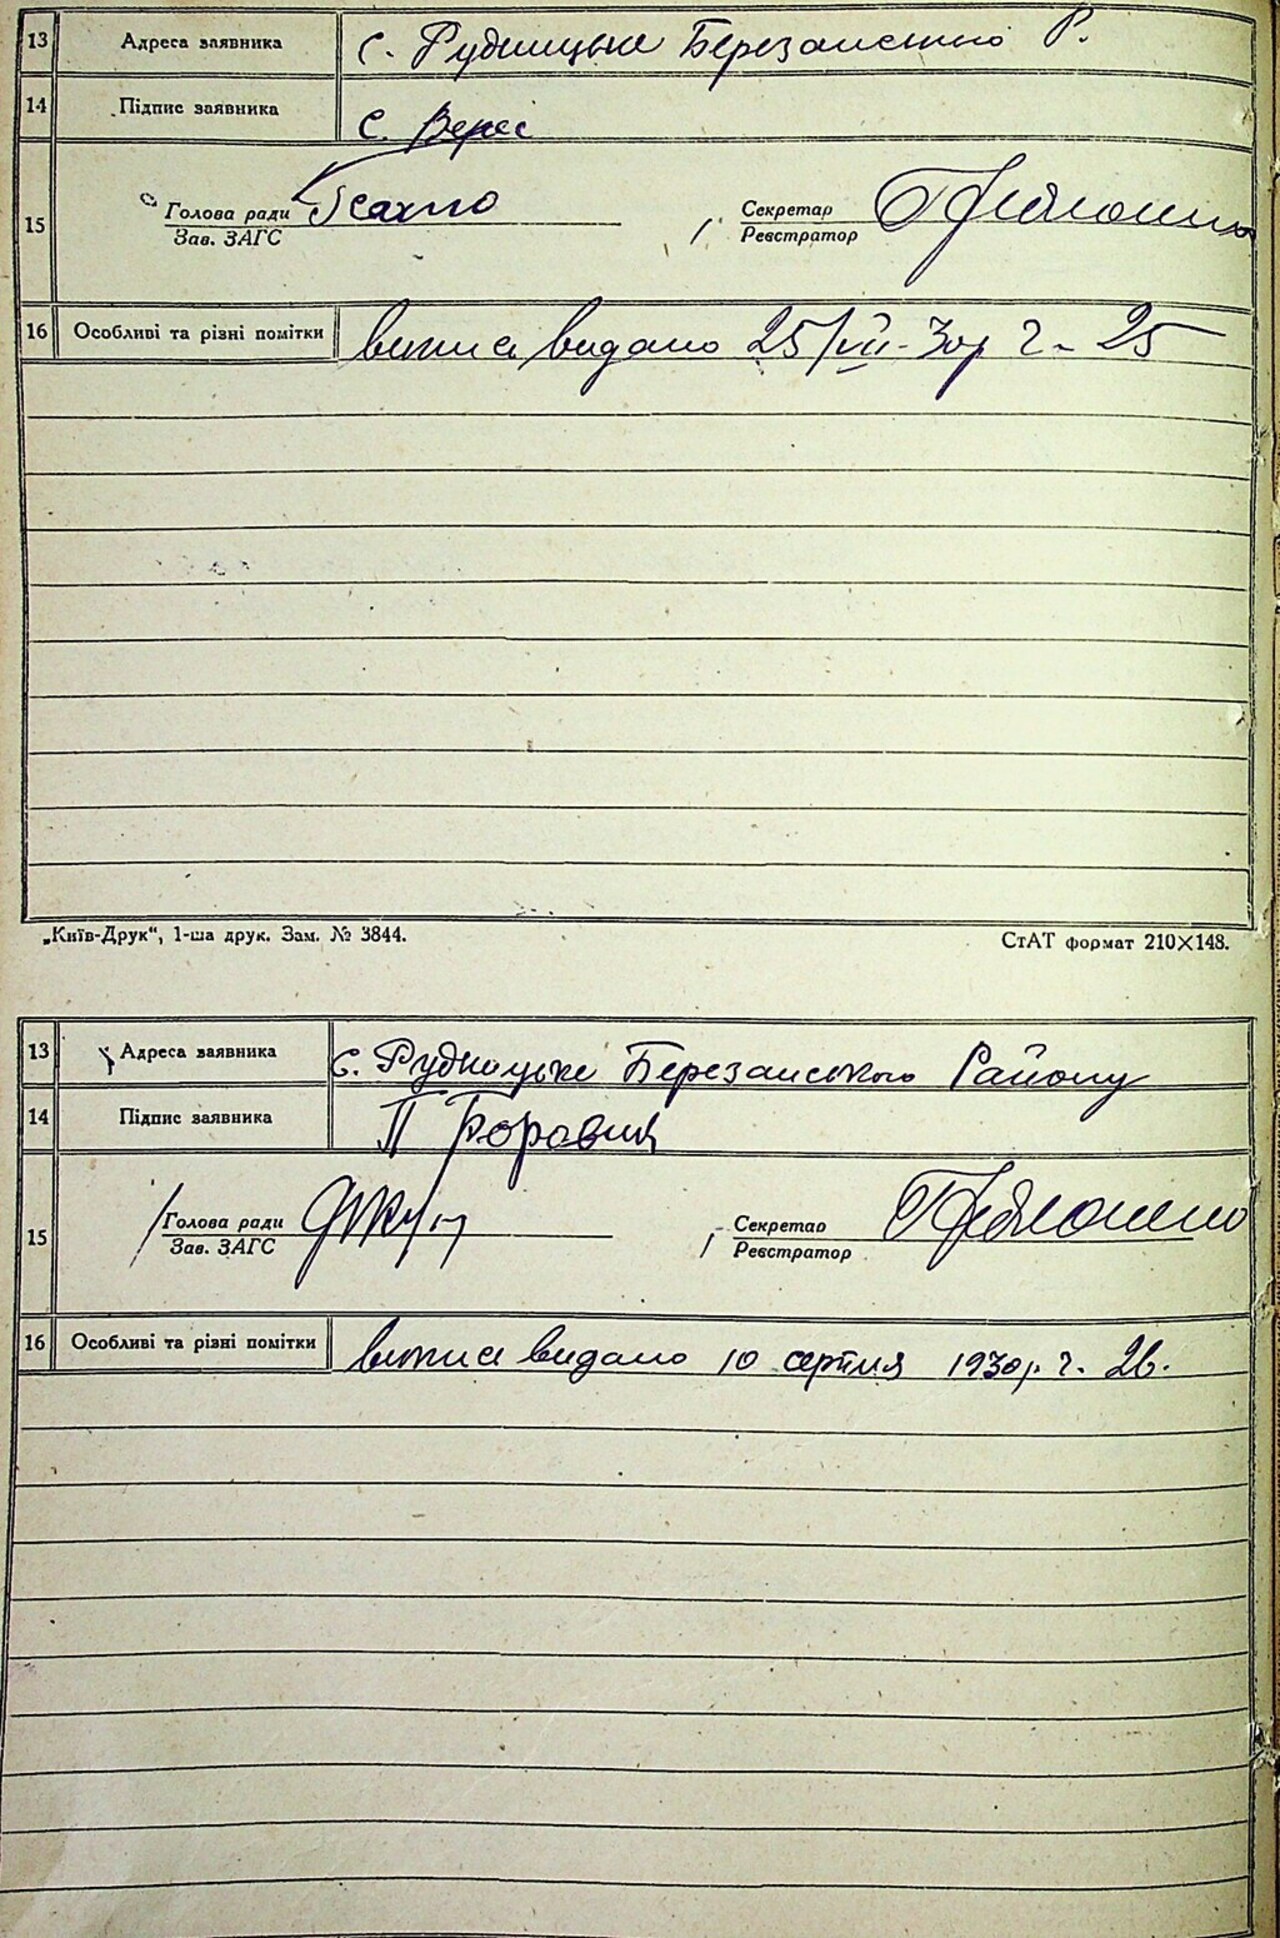 13 Адреса заявника с. Рудницьке Березанського Р.
14 Підпис заявника С. Верес
15 Голова ради Зав. ЗАГС Секретар Реєстратор
16 Особливі та різні помітки випис видано 25/VII-30р ч- 25
„Київ-Друк“, 1-ша друк. Зам. № 3844. СтАТ формат 210×148.
13 Адреса заявника с. Рудницьке Березанського Району
14 Підпис заявника П Боровик
15 Голова ради Зав. ЗАГС Секретар Реєстратор
16 Особливі та різні помітки випис видано 10 серпня 1930р. ч. 26.